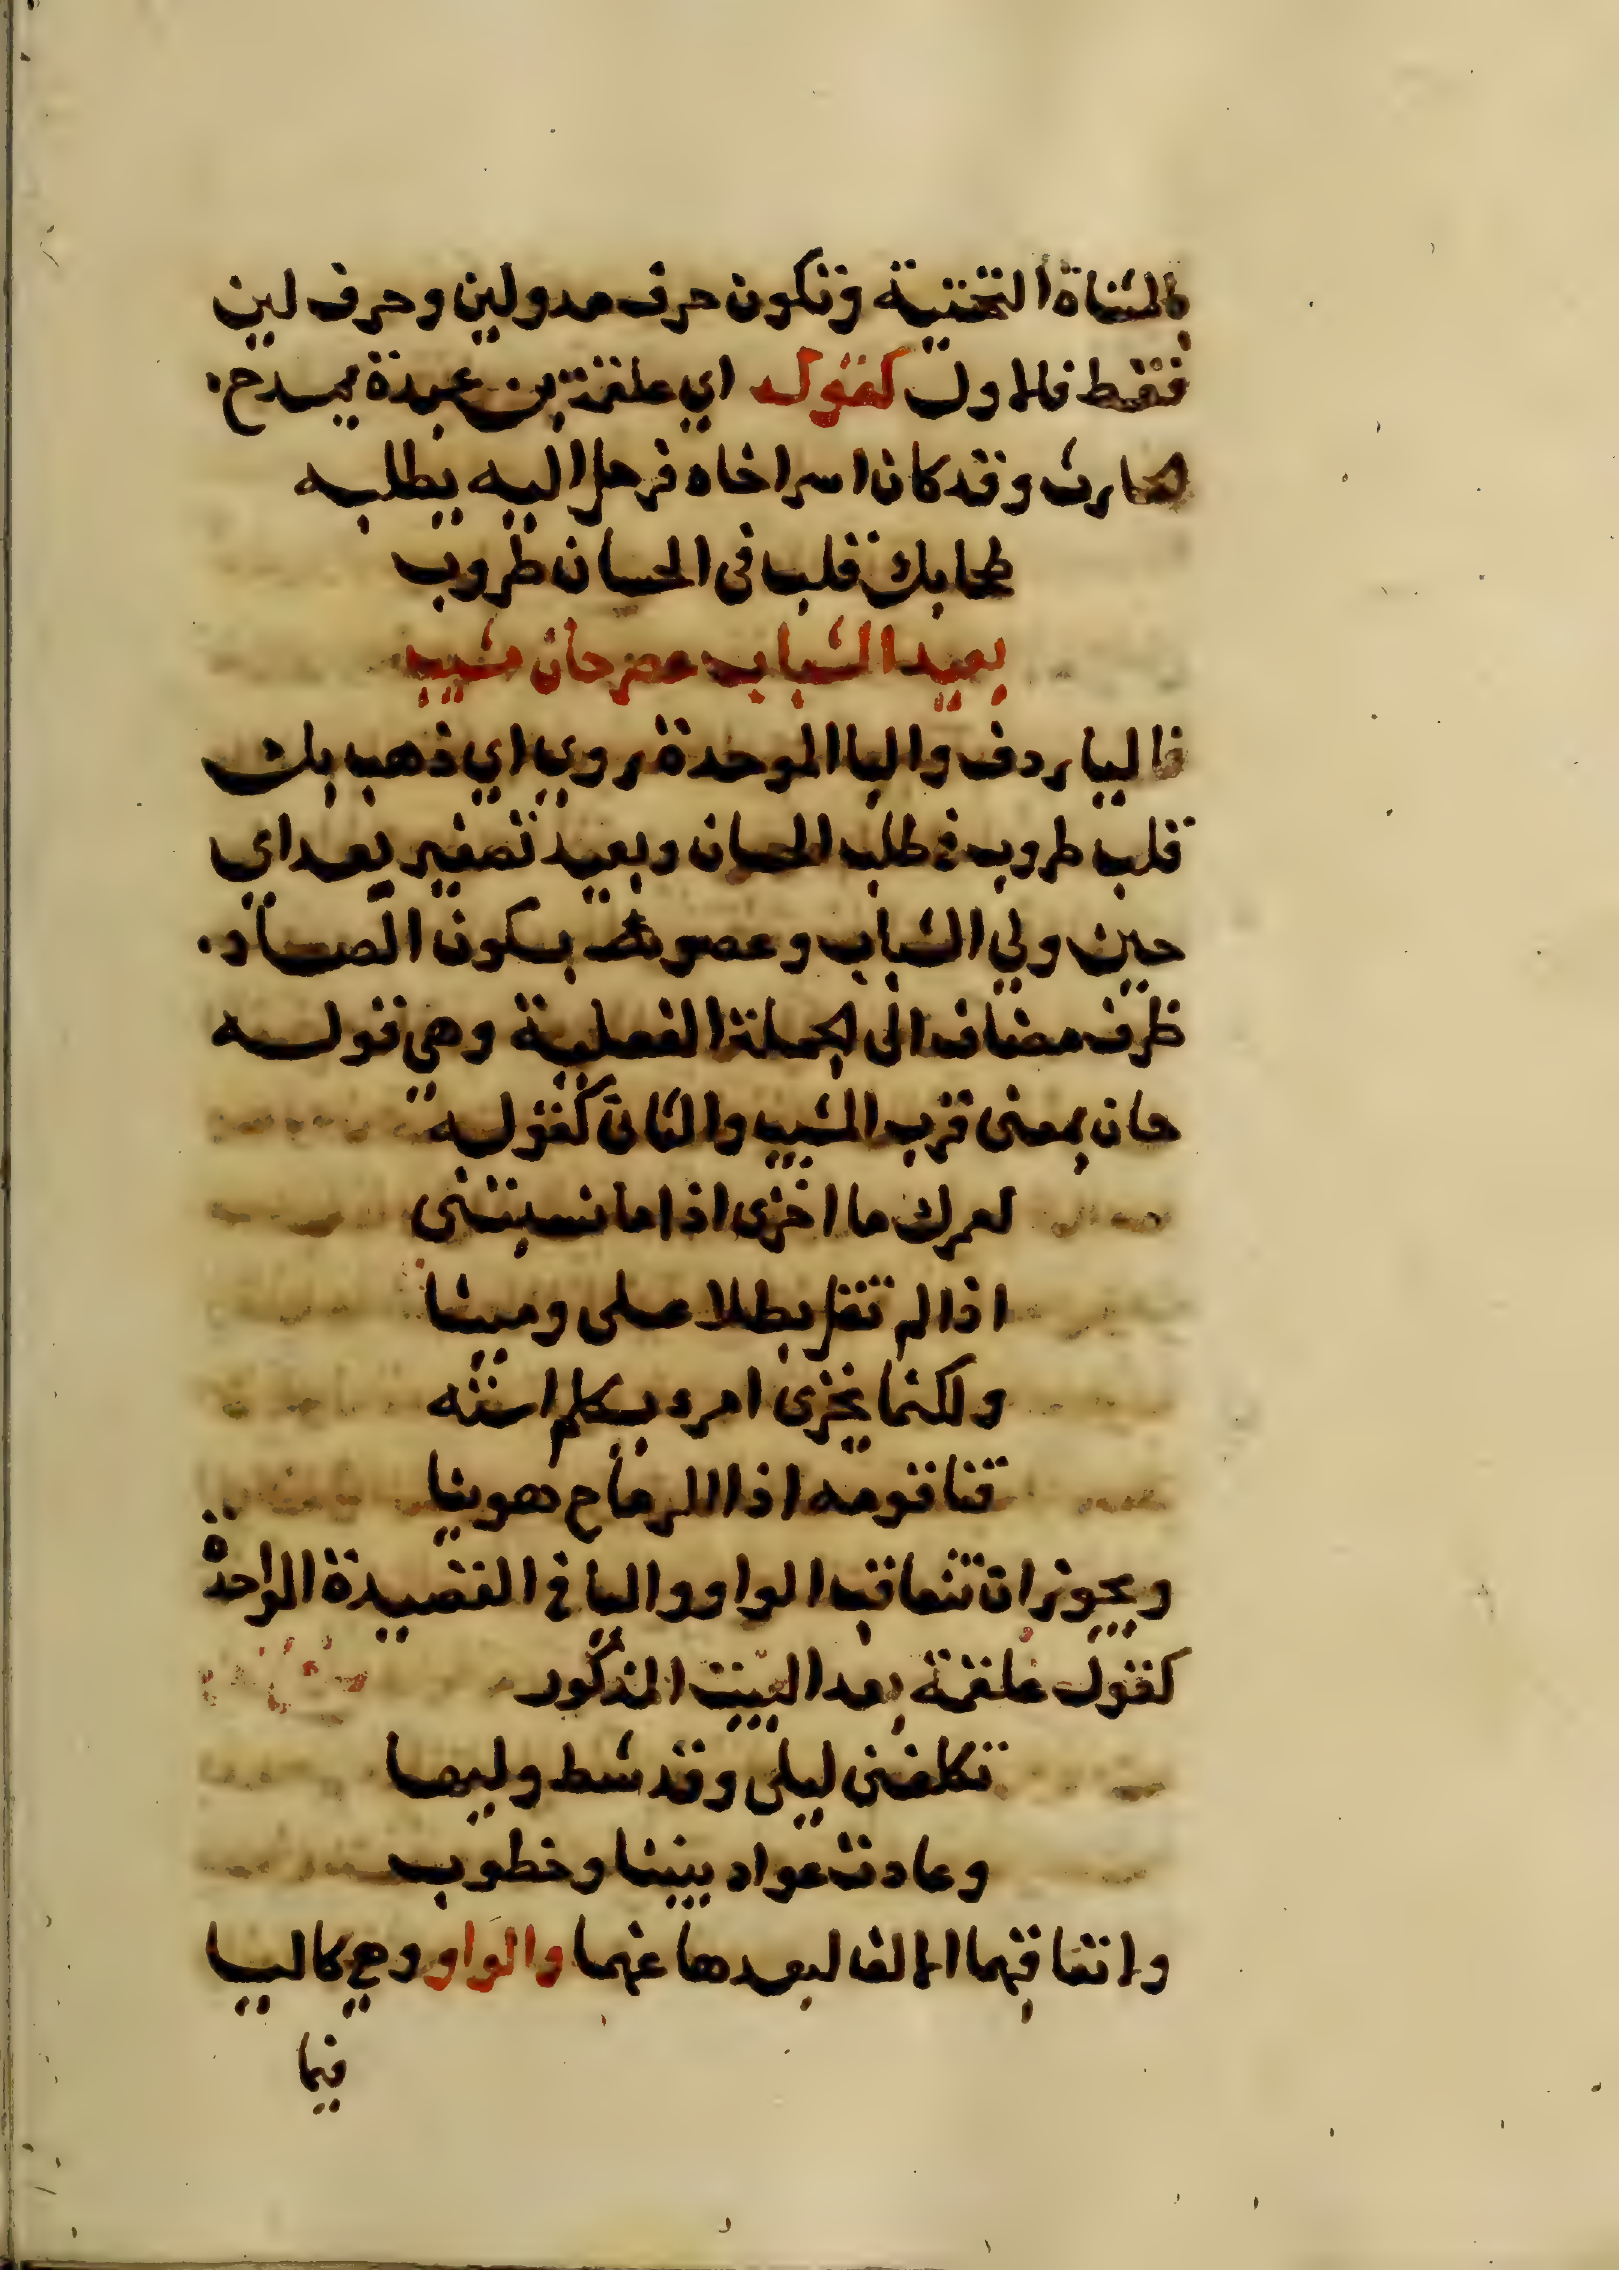 بالمثناة التحتية وتكون حرف مد ولين وحرف لين
فقط فالاول كقول اي علقمة بن عبدة يمدح
الحارث وقد كان اسر اخاه فرحل اليه يطلبه
طحا بك قلب في الحسان طروب
بعيد الشباب عصر حان مشيب
فاليا ردف والبا الموحدة روي اي ذهب بك
قلب طروب في طلب الحسان وبعيد تصغير بعد اي
حين ولي الشباب وعصر بسكون الصاد
ظرف مضاف الى الجملة الفعلية وهي قوله
حان بمعنى قرب المشيب والثاني كقوله
لعمرك ما اخزى اذا ما نسبتنى
اذا لم تقل بطلا على ومينا
ولكنما يخزى امرء يكلم استه
قنا قومه اذا الرماح هوينا
ويجوز ان تتعاقب الواو واليا في القصيدة الواحدة
كقول علقمة بعد البيت المذكور
تكلفنى ليلى وقد شط وليها
وعادت عواد بيننا وخطوب
وانتفا قتهما الالف لبعدها عنهما والواو وهي كاليا
فيما